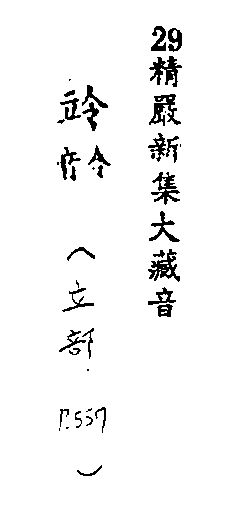 29精嚴新集大藏音
竛(立部 P.557)